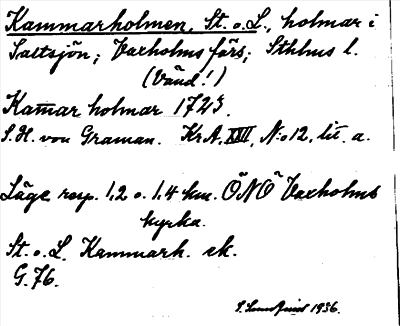 Kammarholmen, St. o. L., holmar i
Saltsjön; Vaxholms förs; Sthlms l.
(Vänd!)
Kam̄ar holmar 1723.
S. H. von Graman. Kr A, XVII, No 12, lit. a.
Läge resp. 1,2 o. 1,4 km. ÖNÖ Vaxholms
kyrka.
St. o. L. Kammarh. sk.
G. 76.
1936.